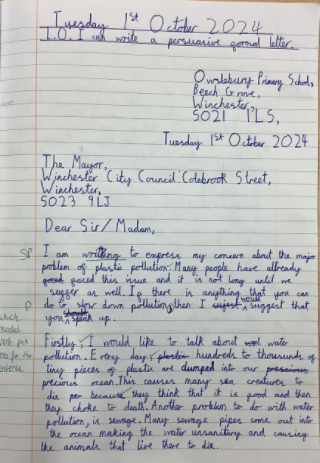 Tuesday 1st October 2024
L.O. I can write a persuasive formal letter.
Owslebury Primary School,
Beech Grove,
Winchester,
SO21 1LS,
Tuesday 1st October 2024
The Mayor,
Winchester City Council Colebrook Street,
Winchester,
SO23 9LJ
Dear Sir/Madam,
SP I am writting to express my concern about the major
problem of plastic pollution. Many people have allready
faced this issue and it is not long until we
sugger as well. If there is anything that you can
do to slow down pollution, then I would suggest that
P you should speak up.
Firstly, I would like to talk about water
pollution. Every day, hundreds to thousands of
tiny pieces of plastic are dumped into our
precious ocean. This causes many sea creatures to
die because they think that it is food and then
they choke to death. Another problem to do with water
pollution, is sewage. Many sewage pipes come out into
the ocean making the water unsanitary and causing
the animals that live there to die.